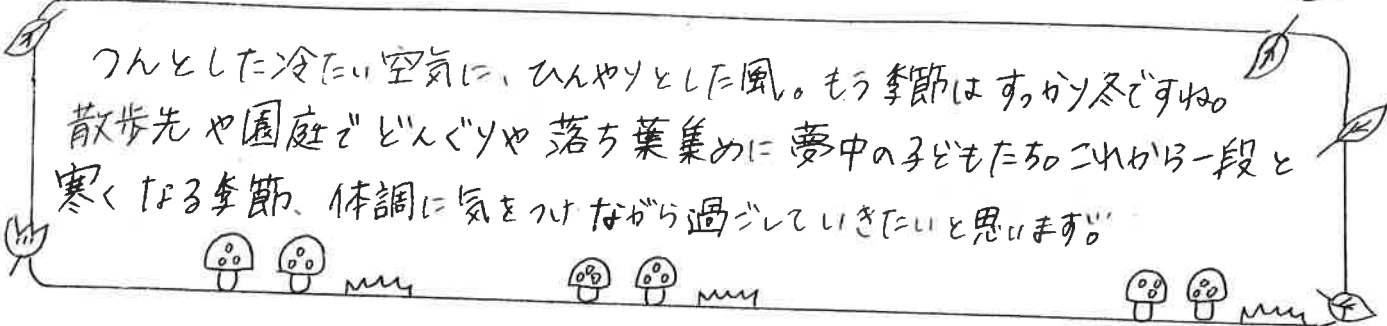 つんとした冷たい空気に、ひんやりとした風。もう季節はすっかり冬ですね。
散歩先や園庭でどんぐりや落ち葉集めに夢中の子どもたち。これから一段と
寒くなる季節、体調に気をつけながら過ごしていきたいと思います。